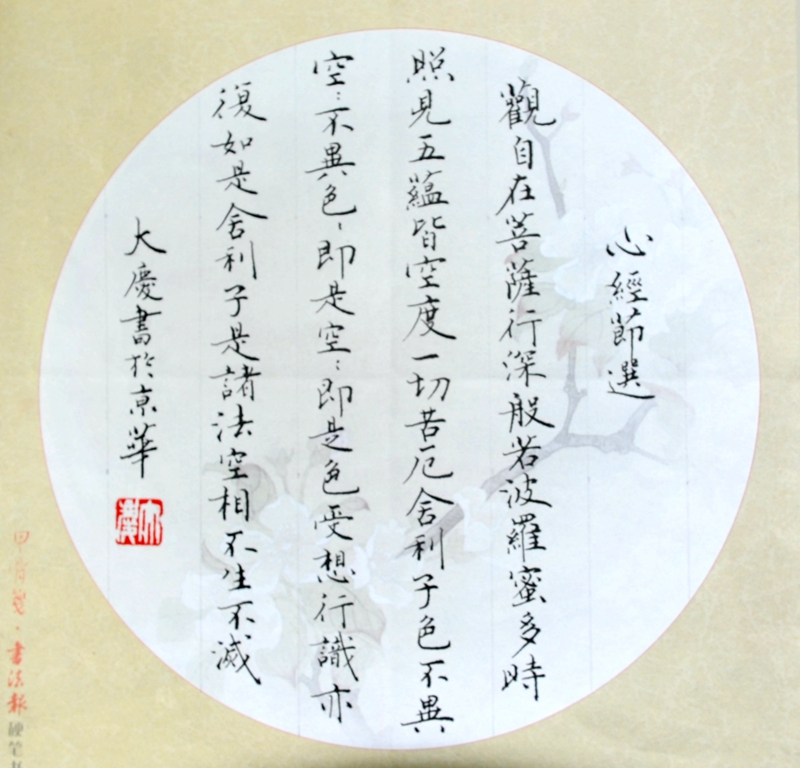 心經節選
觀自在菩薩行深般若波羅蜜多時
照見五蘊皆空度一切苦厄舍利子色不異
空〻不異色〻即是空〻即是色受想行識亦
復如是舍利子是諸法空相不生不滅
大慶書於京華
書法報
硬笔